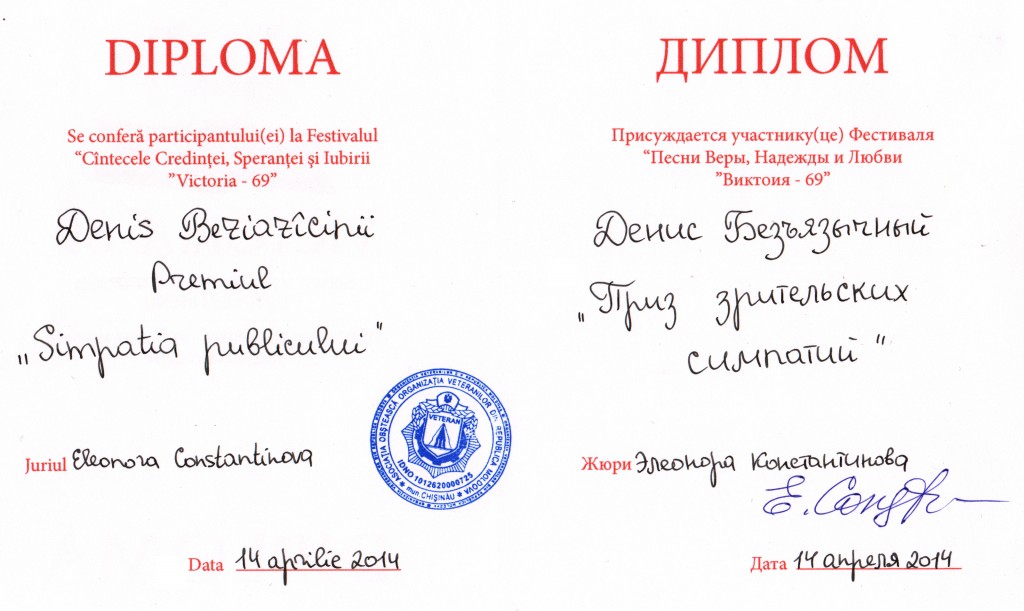 DIPLOMA
Se conferă participantului(ei) la Festivalul
“Cîntecele Credinţei, Speranţei şi Iubirii
”Victoria - 69”
Denis Beziazîcinîi
Premiul
„Simpatia publicului”
ASOCIAŢIA OBŞTEASCĂ ORGANIZAŢIA VETERANILOR DIN REPUBLICA MOLDOVA
VETERAN
IDNO 1012620000725
mun CHIŞINĂU
Juriul Eleonora Constantinova
Data 14 aprilie 2014
ДИПЛОМ
Присуждается участнику(це) Фестиваля
“Песни Веры, Надежды и Любви
”Виктоия - 69”
Денис Безъязычный
„Приз зрительских
симпатий”
Жюри Элеонора Константинова
Дата 14 апреля 2014